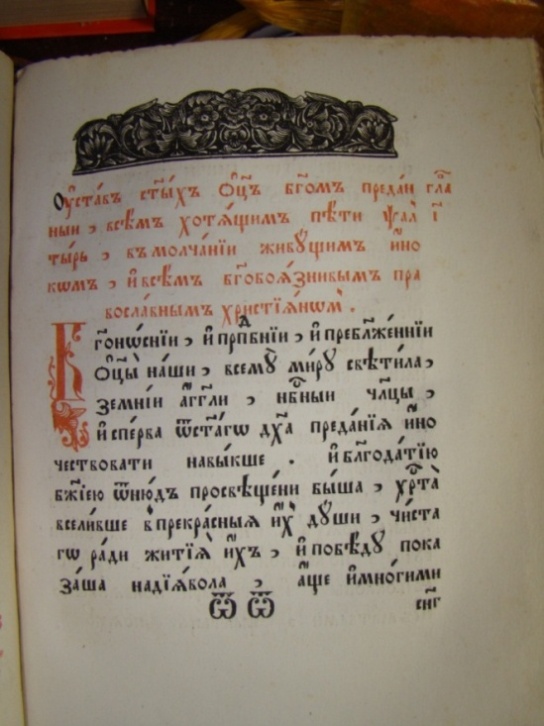 Оу҆ста́въ ст҃ы́хъ Ѻ҆ц҃ъ бг҃омъ преда́н гл҃а
ныи , всѣ́мъ хотѧ́щимъ пѣ́ти ѱал
ты́рь , въмолча́нїи живꙋ́щимъ и҆но
кѡмъ , и҆ всѣ́мъ бг҃обоѧ́знивымъ пра
восла́внымъ христїѧ́нѡм .
Бг҃онѡ́снїи , и҆ прпⷣбнїи , и҆ пребл҃же́ннїи
Ѻ҆ц҃ы̀ на́ши , всемꙋ̀ ми́рꙋ свѣти́ла ,
Земні́и а҆́гг҃ли , нб҃ныи чл҃цы ,
и҆ спе́рва ѿст҃а́гѡ дх҃а преда́нїѧ и҆но
чествовати навы́кше . и҆ бл҃года́тїю
бж҃їею ѿню́дъ просвѣще́ни бы́ша , хрⷭ҇та̀
всели́вше в прекра́сныѧ и҆́хъ дꙋ́ши , чи́ста
гѡ ра́ди житїѧ̀ и҆́хъ , и҆ побѣ́дꙋ пока
за́ша надїѧ́вола , а҆́ще и҆ мно́гими
ѿ ѿ снг